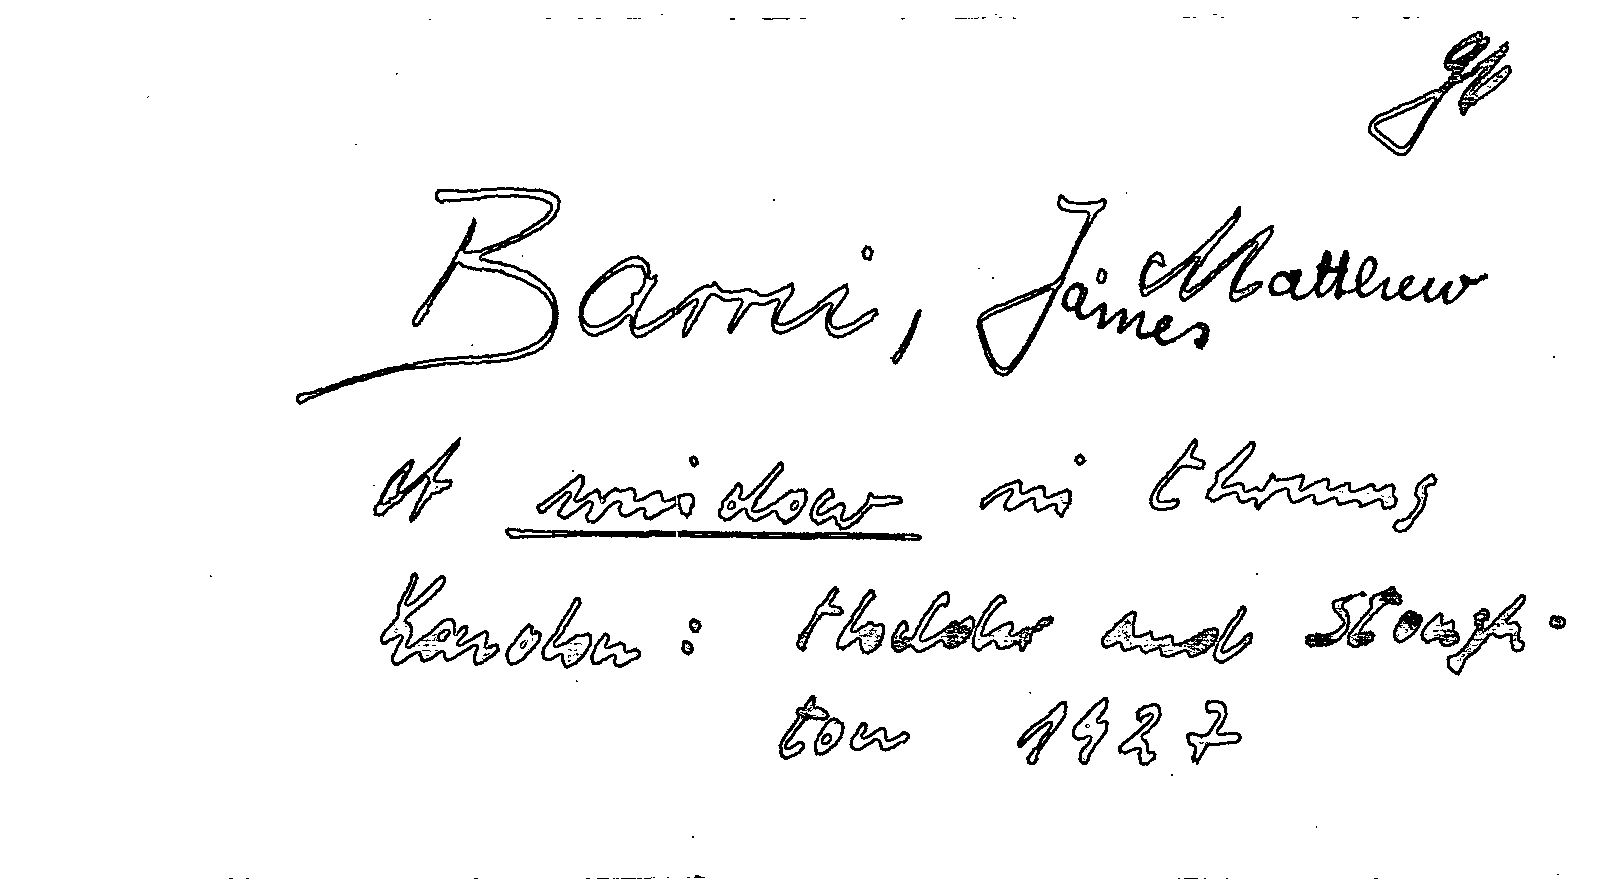 gb
Barrie, James Matthew
A widow in thrums
London: Hodder and Stough-
ton 1927